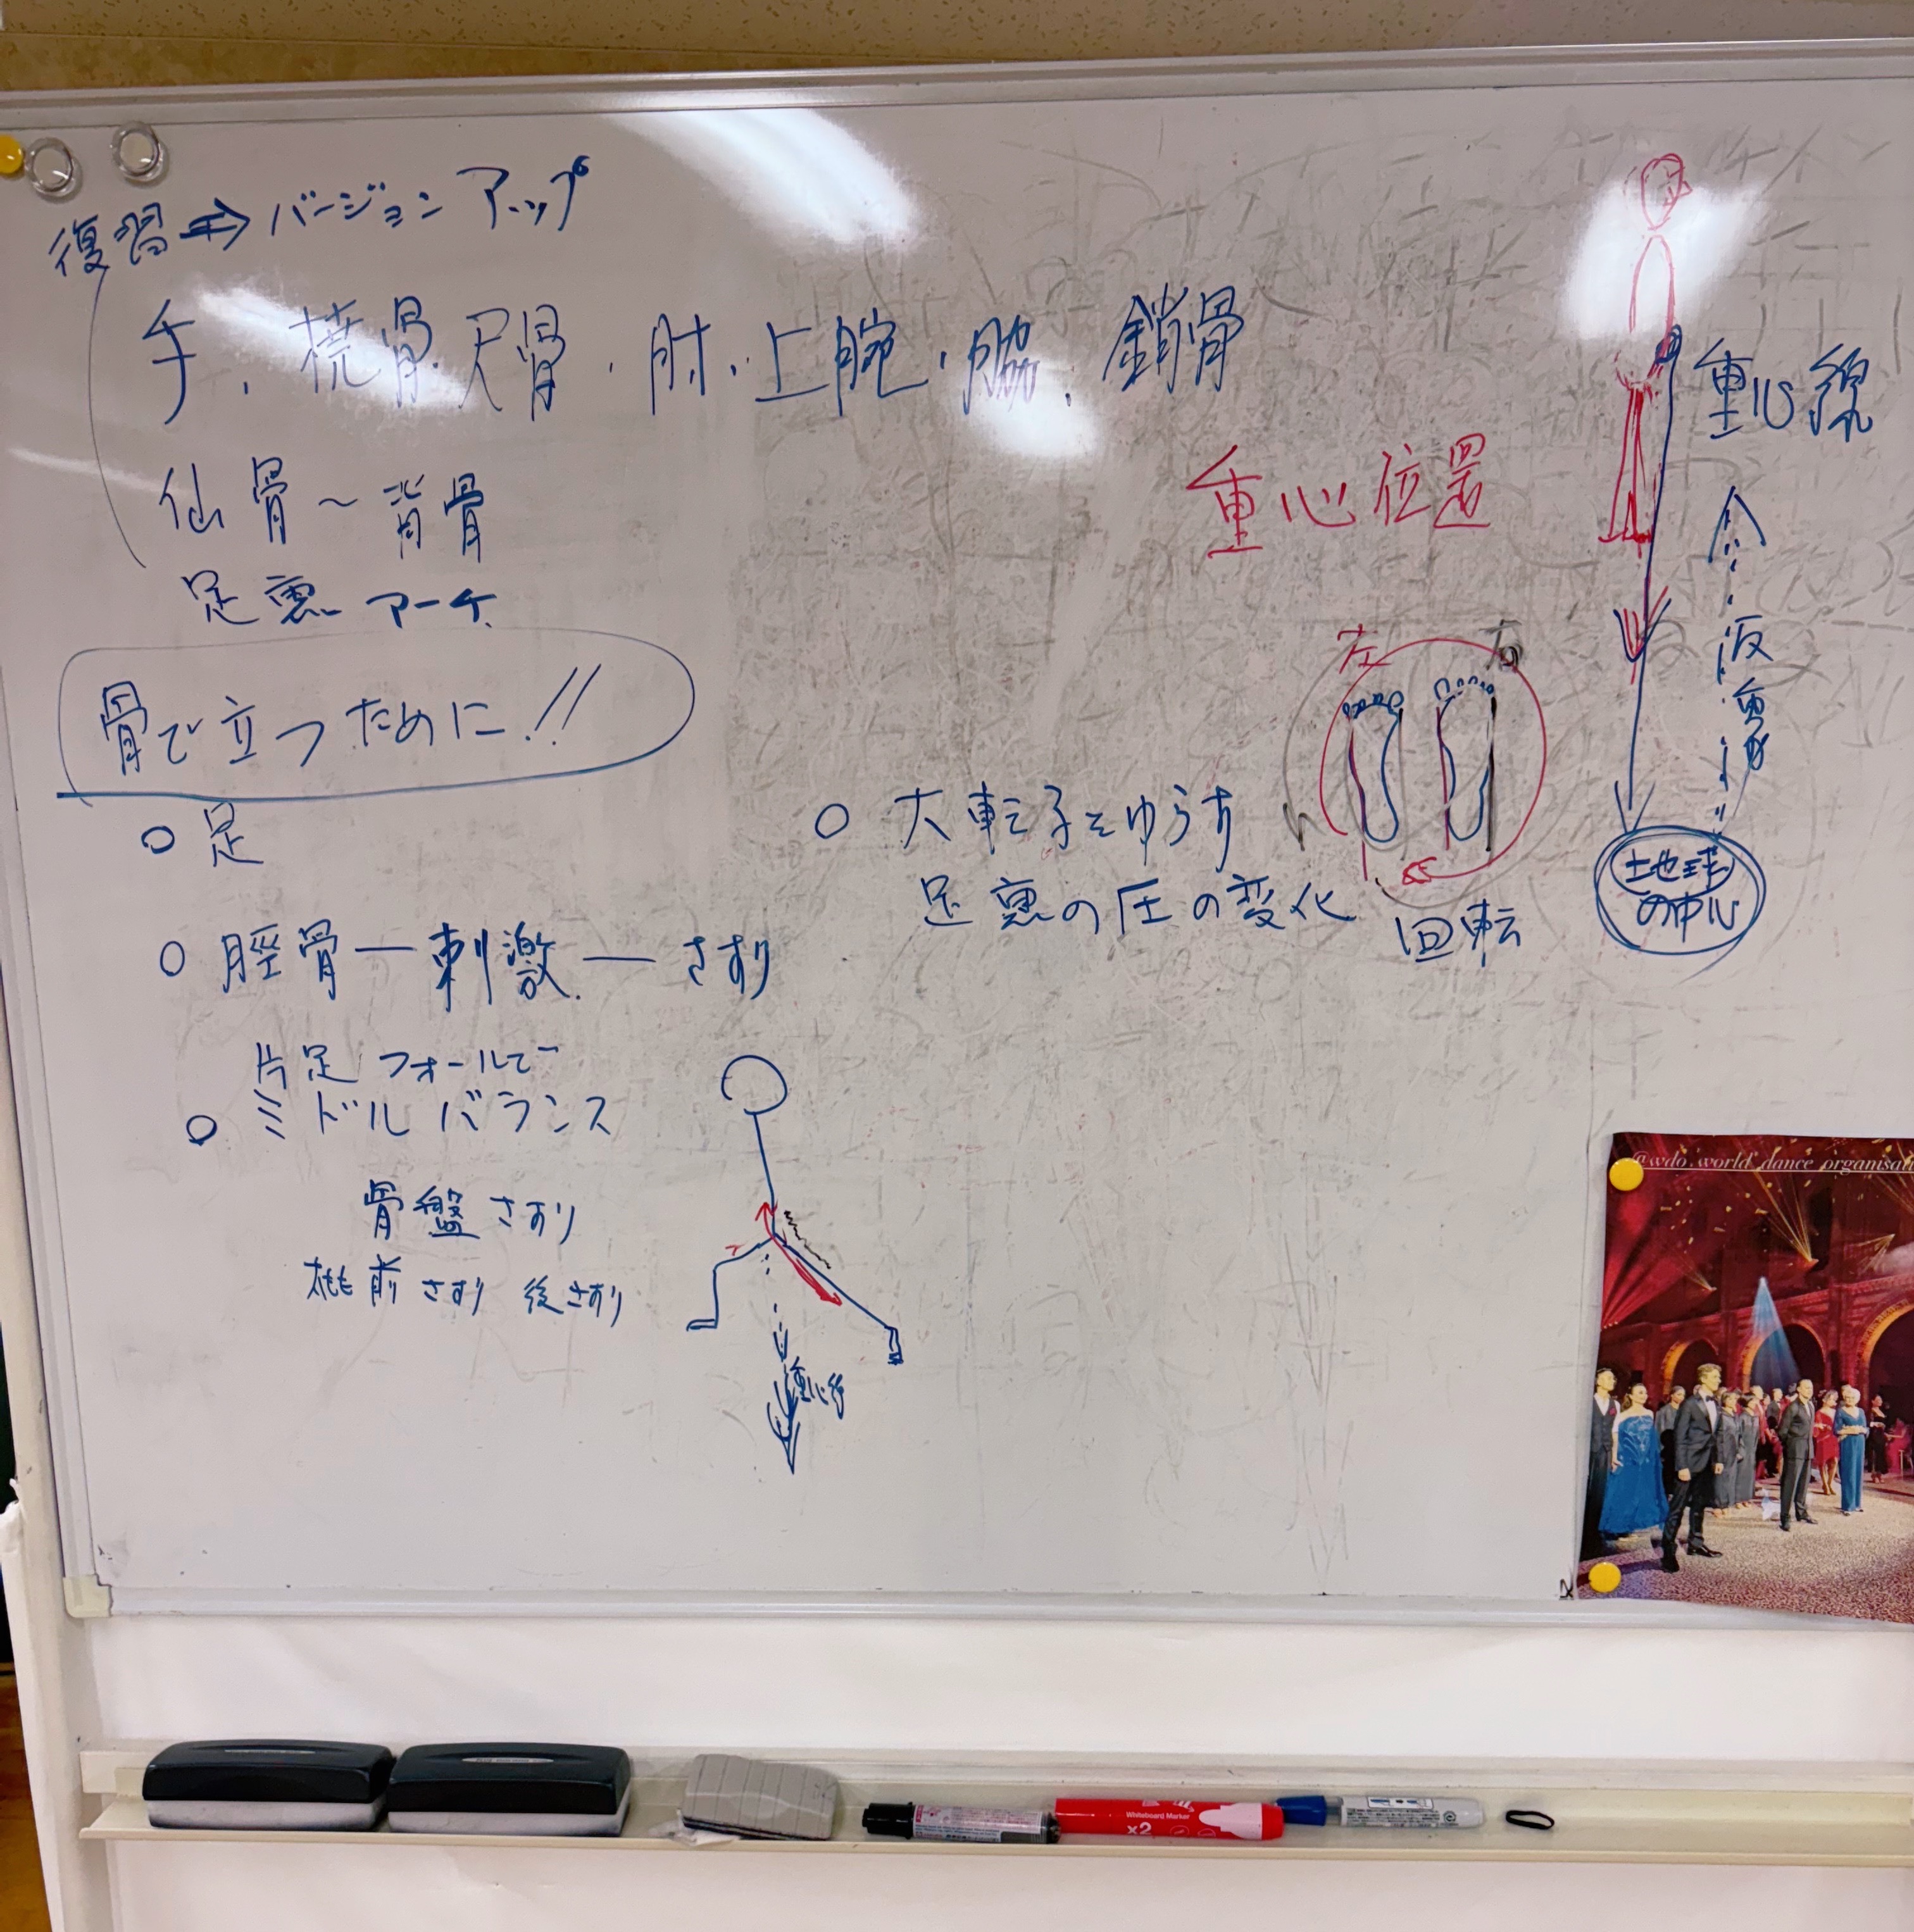 復習⇒バージョンアップ
手、橈骨・尺骨・肘・上腕・脇、鎖骨
仙骨〜背骨
足裏アーチ
骨で立つために!!
○ 足
○ 脛骨―刺激―さすり
片足フォールで
○ ミドルバランス
骨盤さすり
桃前さすり 後さすり
重心
重心位置
左 右
○ 大転子をゆらす
足裏の圧の変化
回転
重心線
反重力
地球
の中心
@wdo.world_dance_organisati
Whiteboard Marker
x2